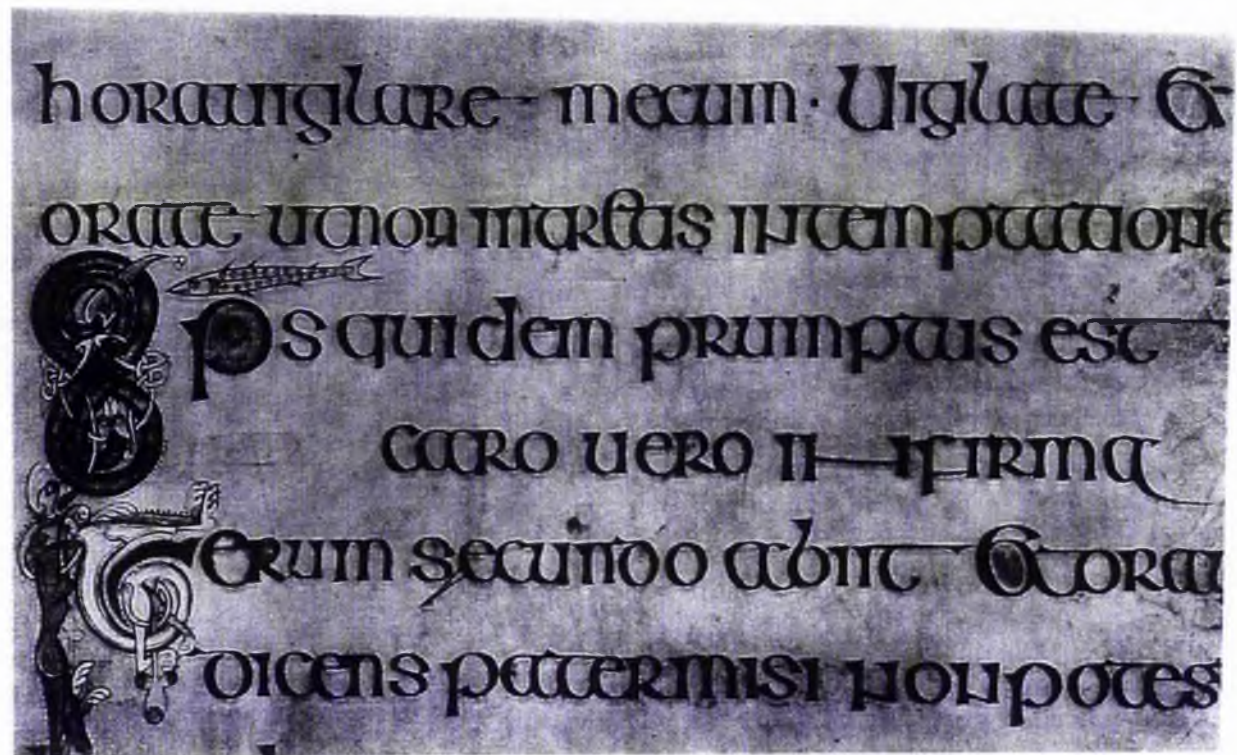 horauiglare mecum · Uiglate Et
orate utnon intretis intemptatione
Sps quidem prumptus est
caro uero infirma
Iterum secundo abiit Etora
dicens patermisi nonpotes